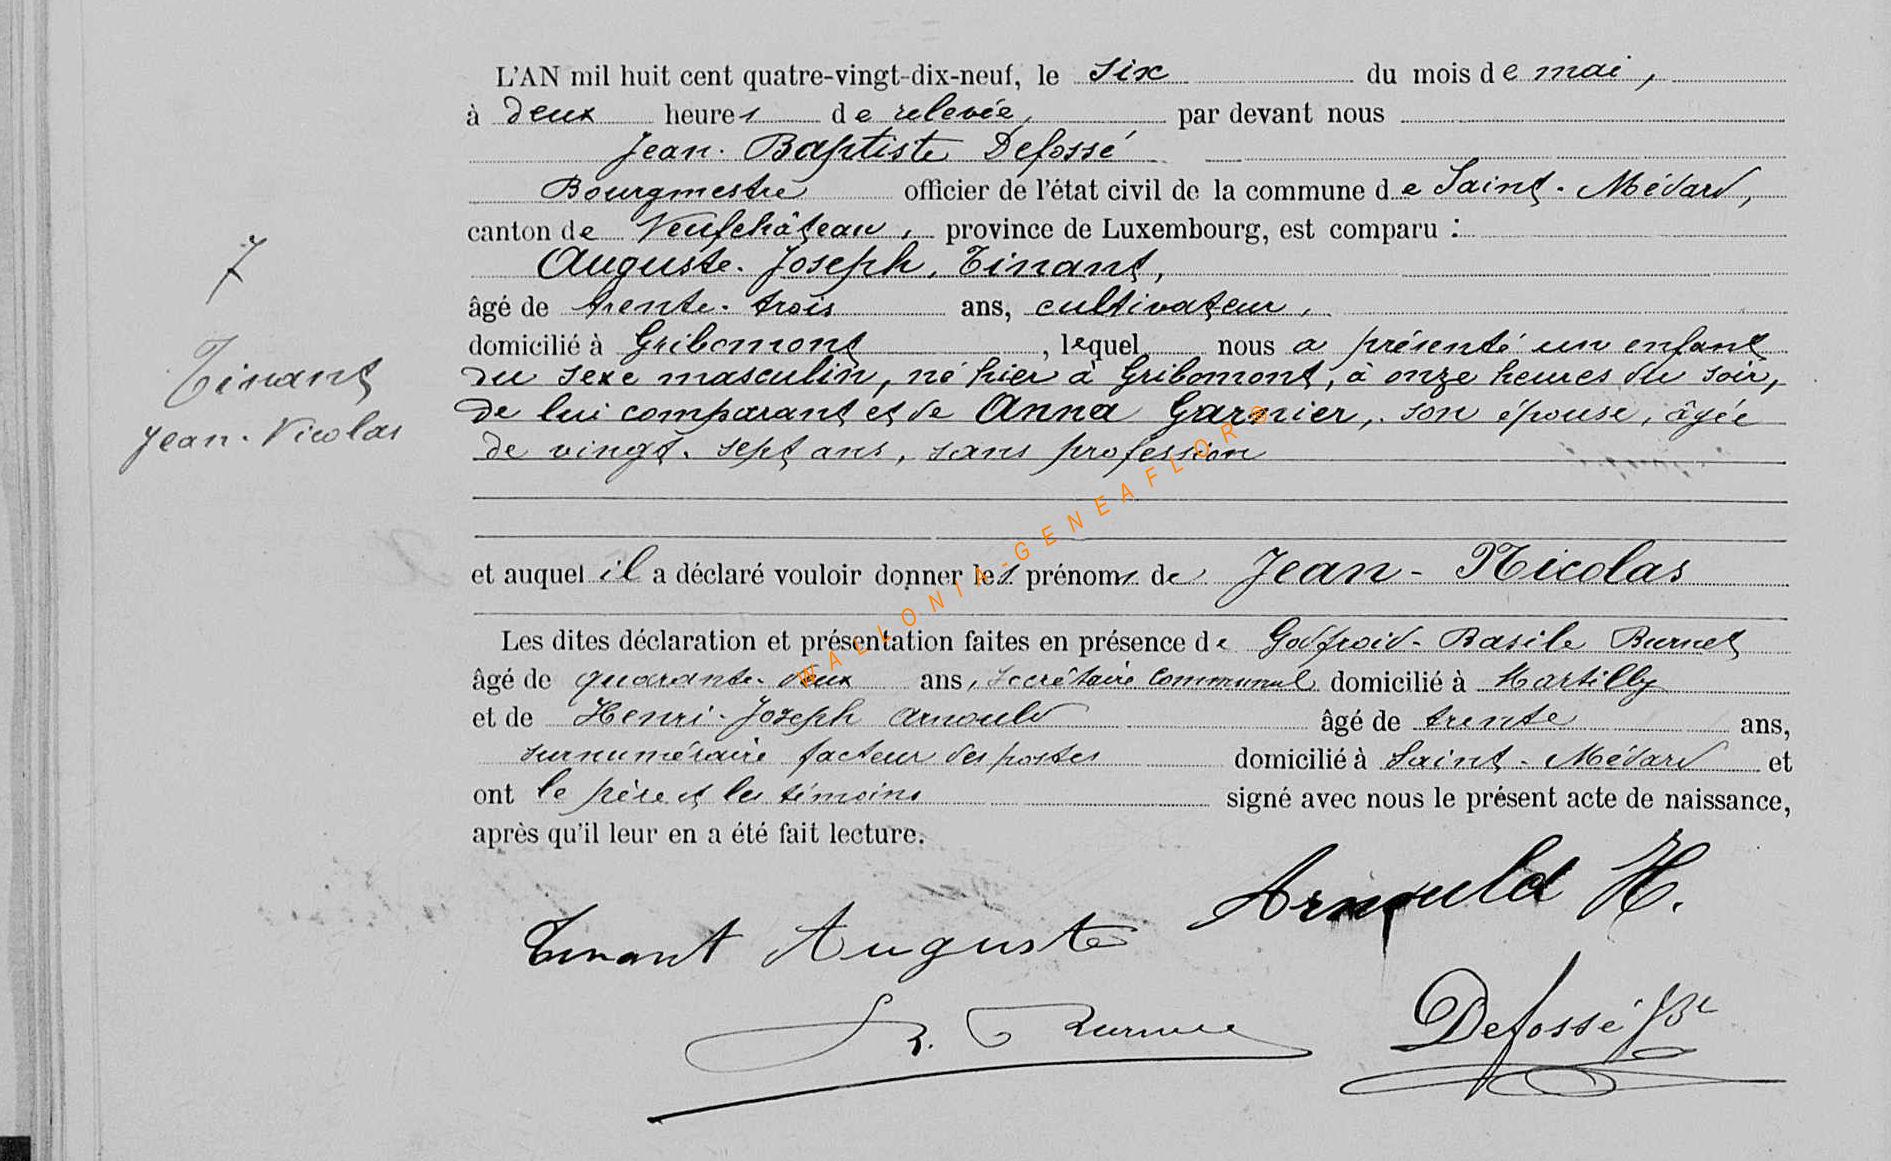 L'AN mil huit cent quatre-vingt-dix-neuf, le six du mois de mai,
à deux heures de relevée, par devant nous
Jean-Baptiste Defossé
Bourgmestre officier de l'état civil de la commune de Saint-Médard,
canton de Neufchâteau, province de Luxembourg, est comparu :
Auguste-Joseph, Tinant,
âgé de trente-trois ans, cultivateur,
domicilié à Gribomont, lequel nous a présenté un enfant
du sexe masculin, né hier à Gribomont, à onze heures du soir,
de lui comparant et de Anna Garnier, son épouse, âgée
de vingt-sept ans, sans profession
7
Tinant
Jean-Nicolas
et auquel il a déclaré vouloir donner les prénoms de Jean-Nicolas
Les dites déclaration et présentation faites en présence de Godfroid-Basile Burnet
âgé de quarante-deux ans, secrétaire communal domicilié à Martilly
et de Henri-Joseph Arnould âgé de trente ans,
surnuméraire facteur des postes domicilié à Saint-Médard et
ont le père et les témoins signé avec nous le présent acte de naissance,
après qu'il leur en a été fait lecture.
Arnould H.
Tinant Auguste
Defossé JBte
WALLONIA-GENEAFLOR®